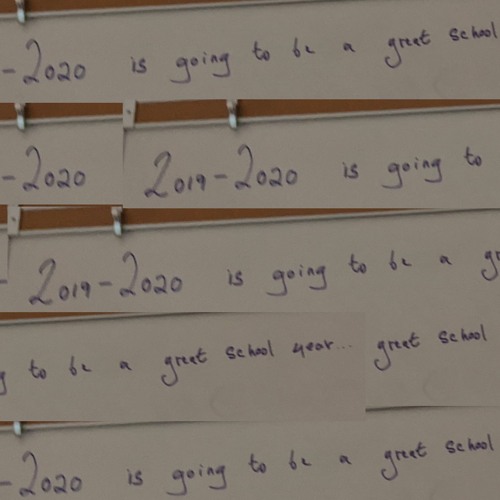 -2020 is going to be a great school
-2020 2019-2020 is going to
- 2019-2020 is going to be a gr
g to be a great school year... great school
-2020 is going to be a great school